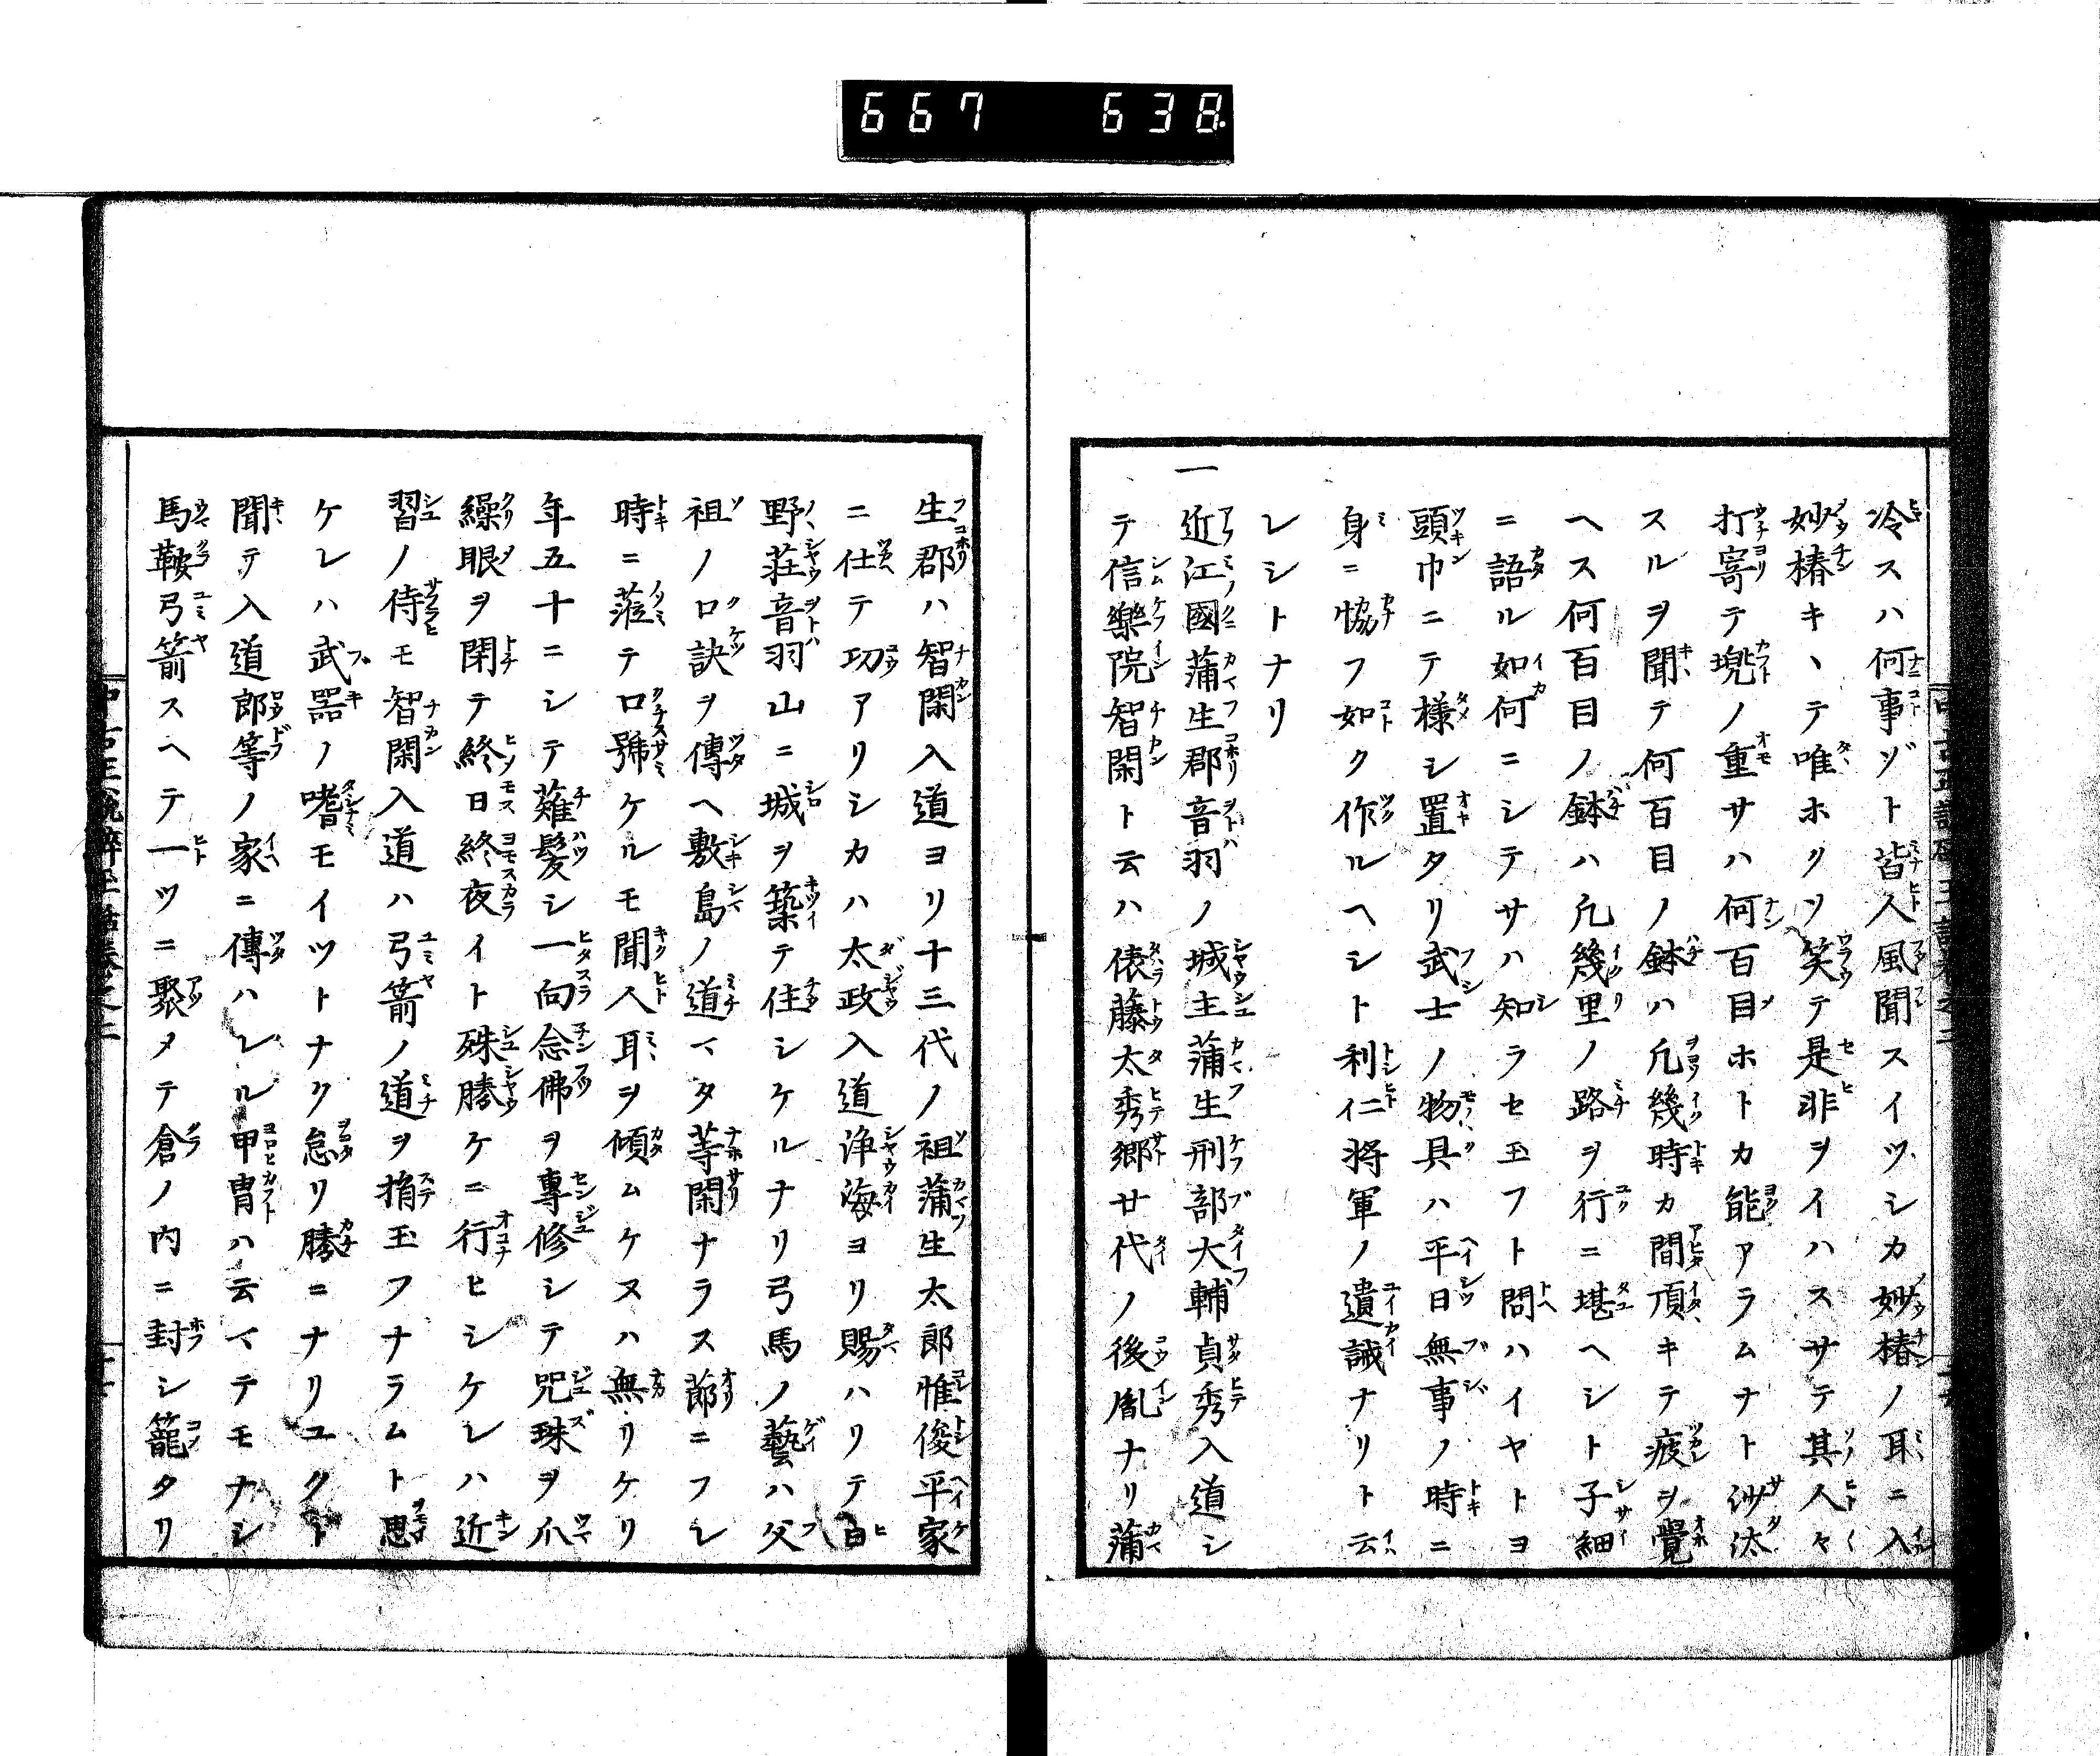 667 638
冷スハ何事ヅト皆人風聞スイツシカ妙椿ノ耳ニ入
妙椿キヽテ唯ホクソ笑テ是非ヲイハスサテ其人々
打寄テ兠ノ重サハ何百目ホトカ能アラムナト沙汰
スルヲ聞テ何百目ノ鉢ハ凢幾時カ間頂キテ疲ヲ覺
ヘス何百目ノ鉢ハ凢幾里ノ路ヲ行ニ堪ヘシト子細
ニ語ル如何ニシテサハ知ラセ玉フト問ハイヤトヨ
頭巾ニテ様シ置タリ武士ノ物具ハ平日無事ノ時ニ
身ニ恊フ如ク作ルヘシト利仁將軍ノ遺誡ナリト云
レシトナリ
一 近江國蒲生郡音羽ノ城主蒲生刑部大輔貞秀入道シ
テ信樂院智閑ト云ハ俵藤太秀郷廿代ノ後胤ナリ蒲
生郡ハ智閑入道ヨリ十三代ノ祖蒲生太郎惟俊平家
ニ仕テ功アリシカハ太政入道淨海ヨリ賜ハリテ日
野荘音羽山ニ城ヲ築テ住シケルナリ弓馬ノ藝ハ父
祖ノ口訣ヲ傳ヘ敷島ノ道マタ等閑ナラス莭ニフレ
時ニ蒞テ口號ケルモ聞人耳ヲ傾ムケヌハ無リケリ
年五十ニシテ薙髮シ一向念佛ヲ專修シテ咒珠ヲ爪
繰眼ヲ閉テ終日終夜イト殊勝ケニ行ヒシケレハ近
習ノ侍モ智閑入道ハ弓箭ノ道ヲ捐玉フナラムト思
ケレハ武噐ノ嗜モイツトナク怠リ勝ニナリユクト
聞テ入道郎等ノ家ニ傳ハレル甲冑ハ云マテモナシ
馬鞍弓箭スヘテ一ツニ聚メテ倉ノ内ニ封シ籠タリ